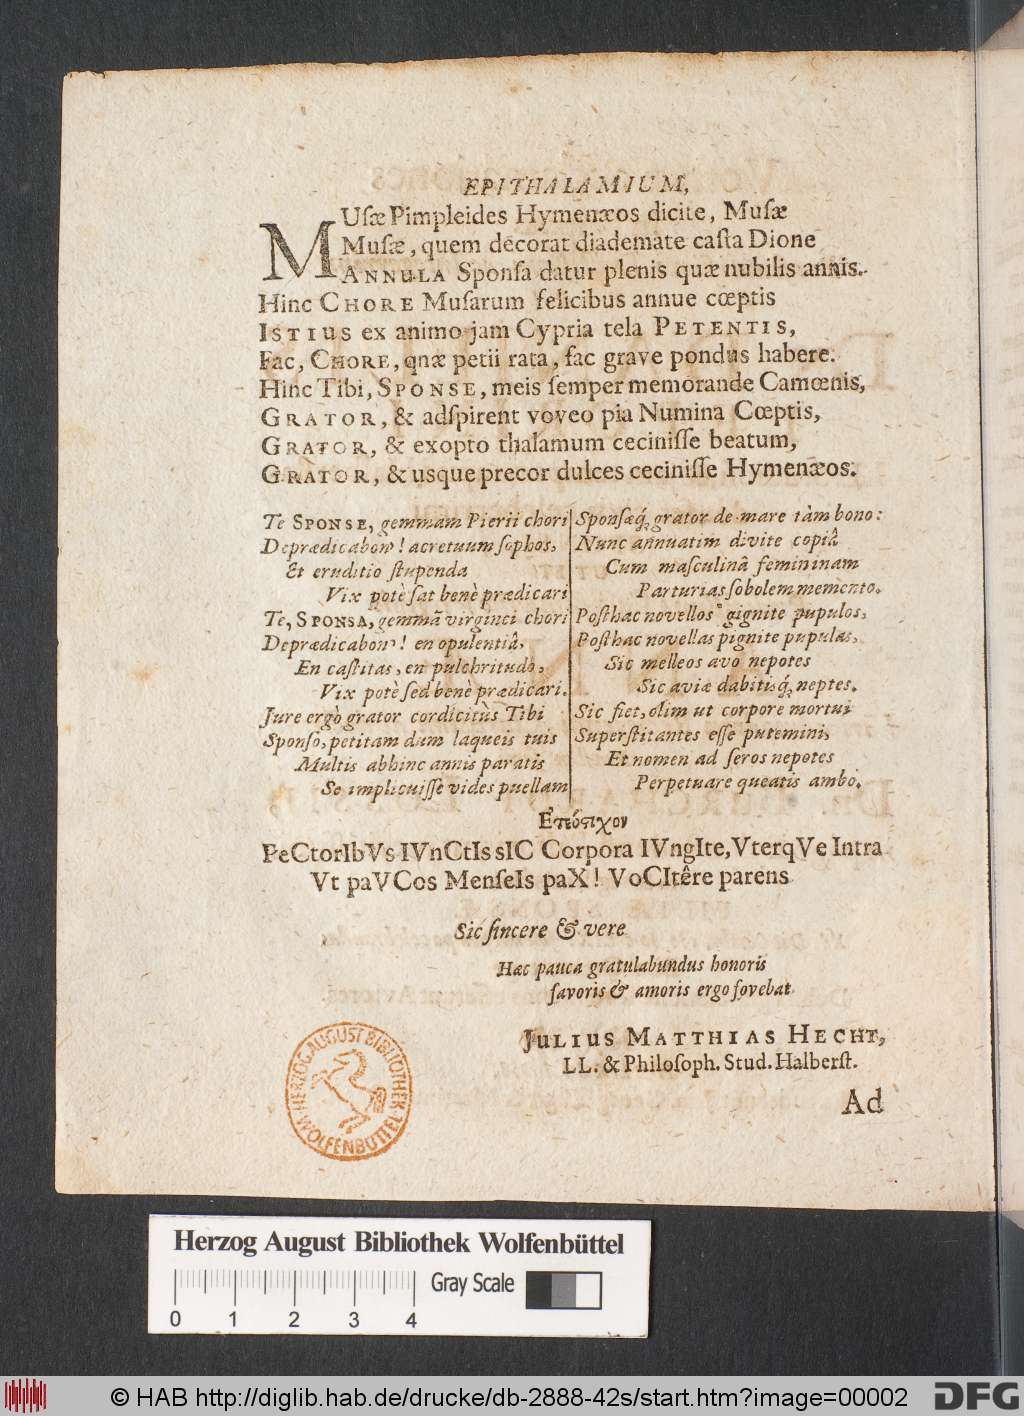 EPITHALAMIUM,
MUſæ Pimpleides Hymenæos dicite, Muſæ
Muſæ, quem decorat diademate caſta Dione
ANNULA Sponſa datur plenis quæ nubilis annis.
Hinc CHORE Muſarum felicibus annue cœptis
ISTIUS ex animo jam Cypria tela PETENTIS,
Fac, CHORE, quæ petii rata, fac grave pondus habere.
Hinc Tibi, SPONSE, meis ſemper memorande Camœnis,
GRATOR, & adſpirent voveo pia Numina Cœptis,
GRATOR, & exopto thalamum ceciniſſe beatum,
GRATOR, & usque precor dulces ceciniſſe Hymenæos.
Te SPONSE, gemmam Pierii chori
Deprædicabon! acretuum ſophos,
Et eruditio ſtupenda
Vix potè ſat benè prædicari
Te, SPONSA, gemmã virginei chori
Deprædicabon! en opulentiâ,
En caſtitas, en pulchritudo,
Vix potè ſed benè prædicari.
Jure ergò grator cordicitùs Tibi
Sponſo, petitam dum laqueis tuis
Multis abhinc annis paratis
Se implicuiſſe vides puellam
Sponſæq́; grator de mare tàm bono:
Nunc annuatim divite copiâ
Cum maſculinâ femininam
Parturias ſobolem memento.
Poſthac novellos gignite pupulos,
Poſthac novellas pignite pupulas,
Sic melleos avo nepotes
Sic aviæ dabitisq́; neptes.
Sic fiet, olim ut corpore mortui
Superſtitantes eſſe putemini,
Et nomen ad ſeros nepotes
Perpetuare queatis ambo.
PeCtorIbVs IVnCtIs sIC Corpora IVngIte, VterqVe Intra
Vt paVCos MenſeIs paX! VoCItêre parens
Sic ſincere & vere
Hæc pauca gratulabundus honoris
favoris & amoris ergo fovebat
JULIUS MATTHIAS HECHT,
LL. & Philoſoph. Stud. Halberſt.
Ad
HERZOG AUGUST BIBLIOTHEK
WOLFENBÜTTEL
Herzog August Bibliothek Wolfenbüttel
Gray Scale
0 1 2 3 4
© HAB http://diglib.hab.de/drucke/db-2888-42s/start.htm?image=00002
DFG